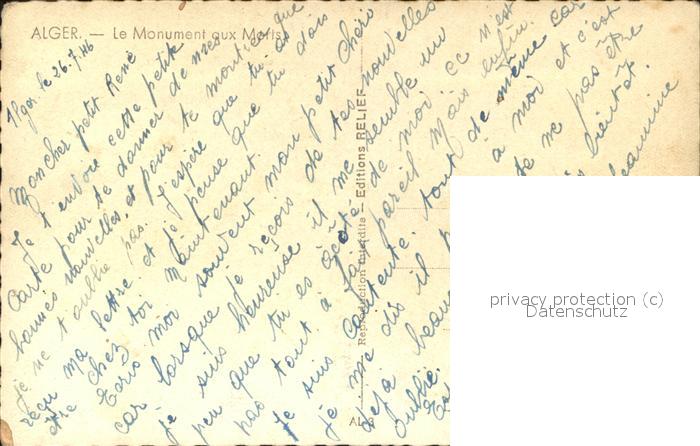 ALGER. — Le Monument aux Morts
Alger le 26.7.46
Mon cher petit René
Je t'envoie cette petite
carte pour te donner de mes
bonnes nouvelles, et pour te montrer que
je ne t'oublie pas. J'espère que tu as
reçu ma lettre et je pense que tu dois
être chez toi maintenant.
Ecris moi souvent mon petit Chéri
car lorsque je reçois de tes nouvelles
je suis heureuse il me semble un
peu que tu es à côté de moi, ce n'est
pas tout à fait pareil mais enfin.
Je suis contente tout de même car
je me dis il à moi et c'est
déjà beau de ne pas être
oublié. bientôt.
Jeannine
Reproduction Interdite — Editions RELIEF
privacy protection (c)
Datenschutz